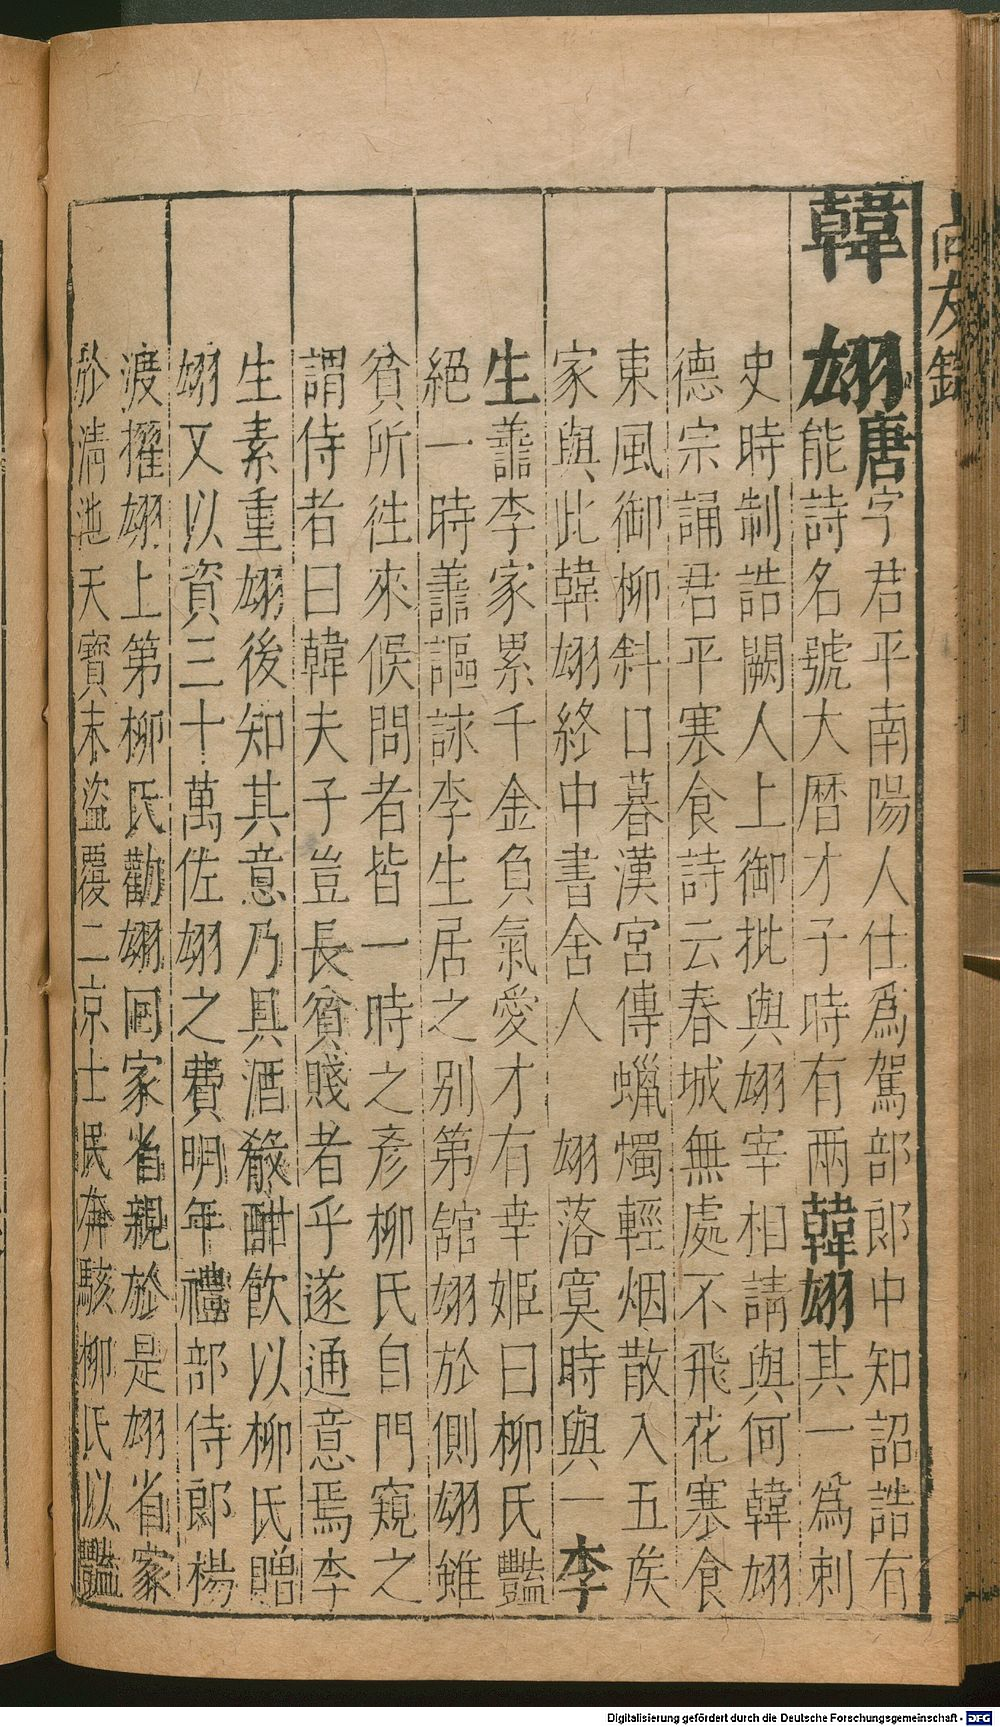 尚友錄
韓翃唐字君平南陽人仕爲駕部郎中知詔誥有
能詩名號大曆才子時有兩韓翃其一爲刺
史時制誥闕人上御批與翃宰相請與何韓翃
德宗誦君平寒食詩云春城無處不飛花寒食
東風御柳斜口暮漢宮傳蠟燭輕烟散入五矦
家與此韓翃終中書舍人 翃落寞時與一李
生善李家累千金負氣愛才有幸姬曰柳氏豔
絕一時善謳詠李生居之別第舘翃於側翃雖
貧所往來候問者皆一時之彥柳氏自門窺之
謂侍者曰韓夫子豈長貧賤者乎遂通意焉李
生素重翃後知其意乃具酒殽酣飲以柳氏贈
翃又以資三十萬佐翃之費明年禮部侍郎楊
渡擢翃上第柳氏勸翃囘家省親於是翃省家
於淸池天寶末盜覆二京士民奔駭柳氏以豔
Digitalisierung gefördert durch die Deutsche Forschungsgemeinschaft - DFG